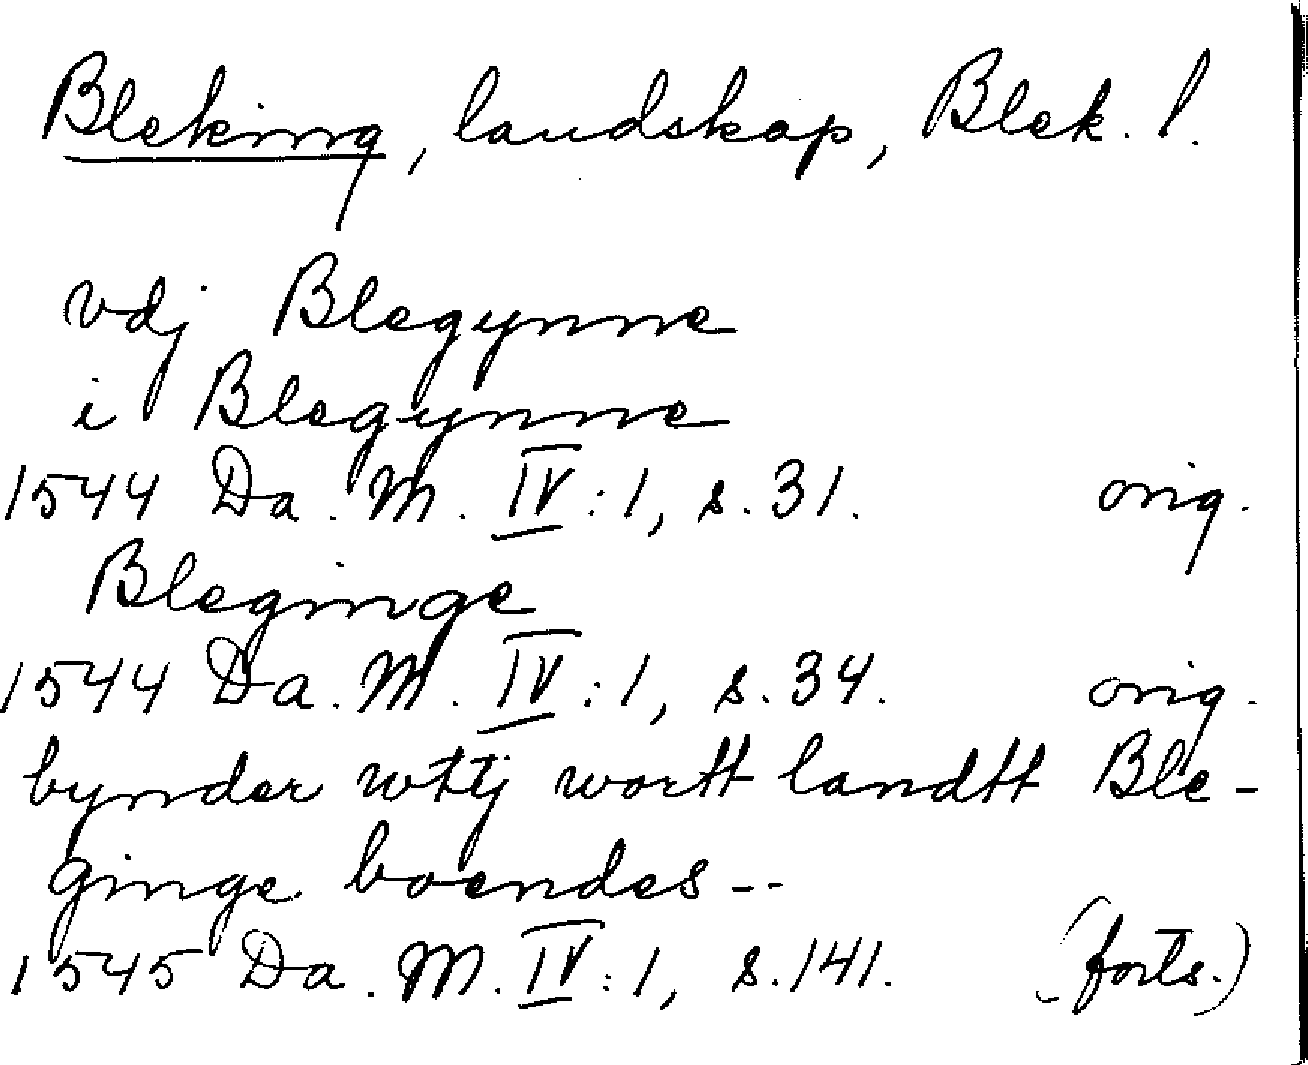 Bleking, landskap, Blek. l.
vdj Blegynne
i Blegynne
1544 Da. M. IV:1, s. 31. orig.
Bleginge
1544 Da. M. IV:1, s. 34. orig.
bynder wttj wortt landtt Ble-
ginge boendes --
1545 Da. M. IV:1, s. 141. (forts.)